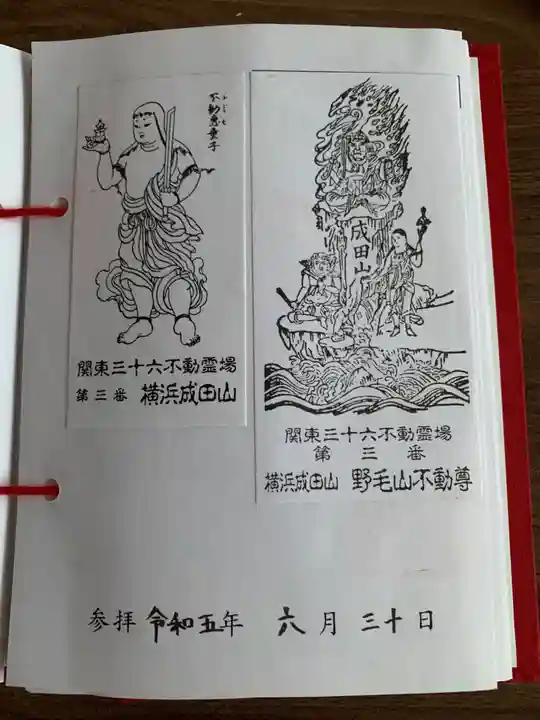 不動恵童子
関東三十六不動霊場
第三番 横浜成田山
成田山
関東三十六不動霊場
第三番
横浜成田山 野毛山不動尊
参拝 令和五年 六月三十日